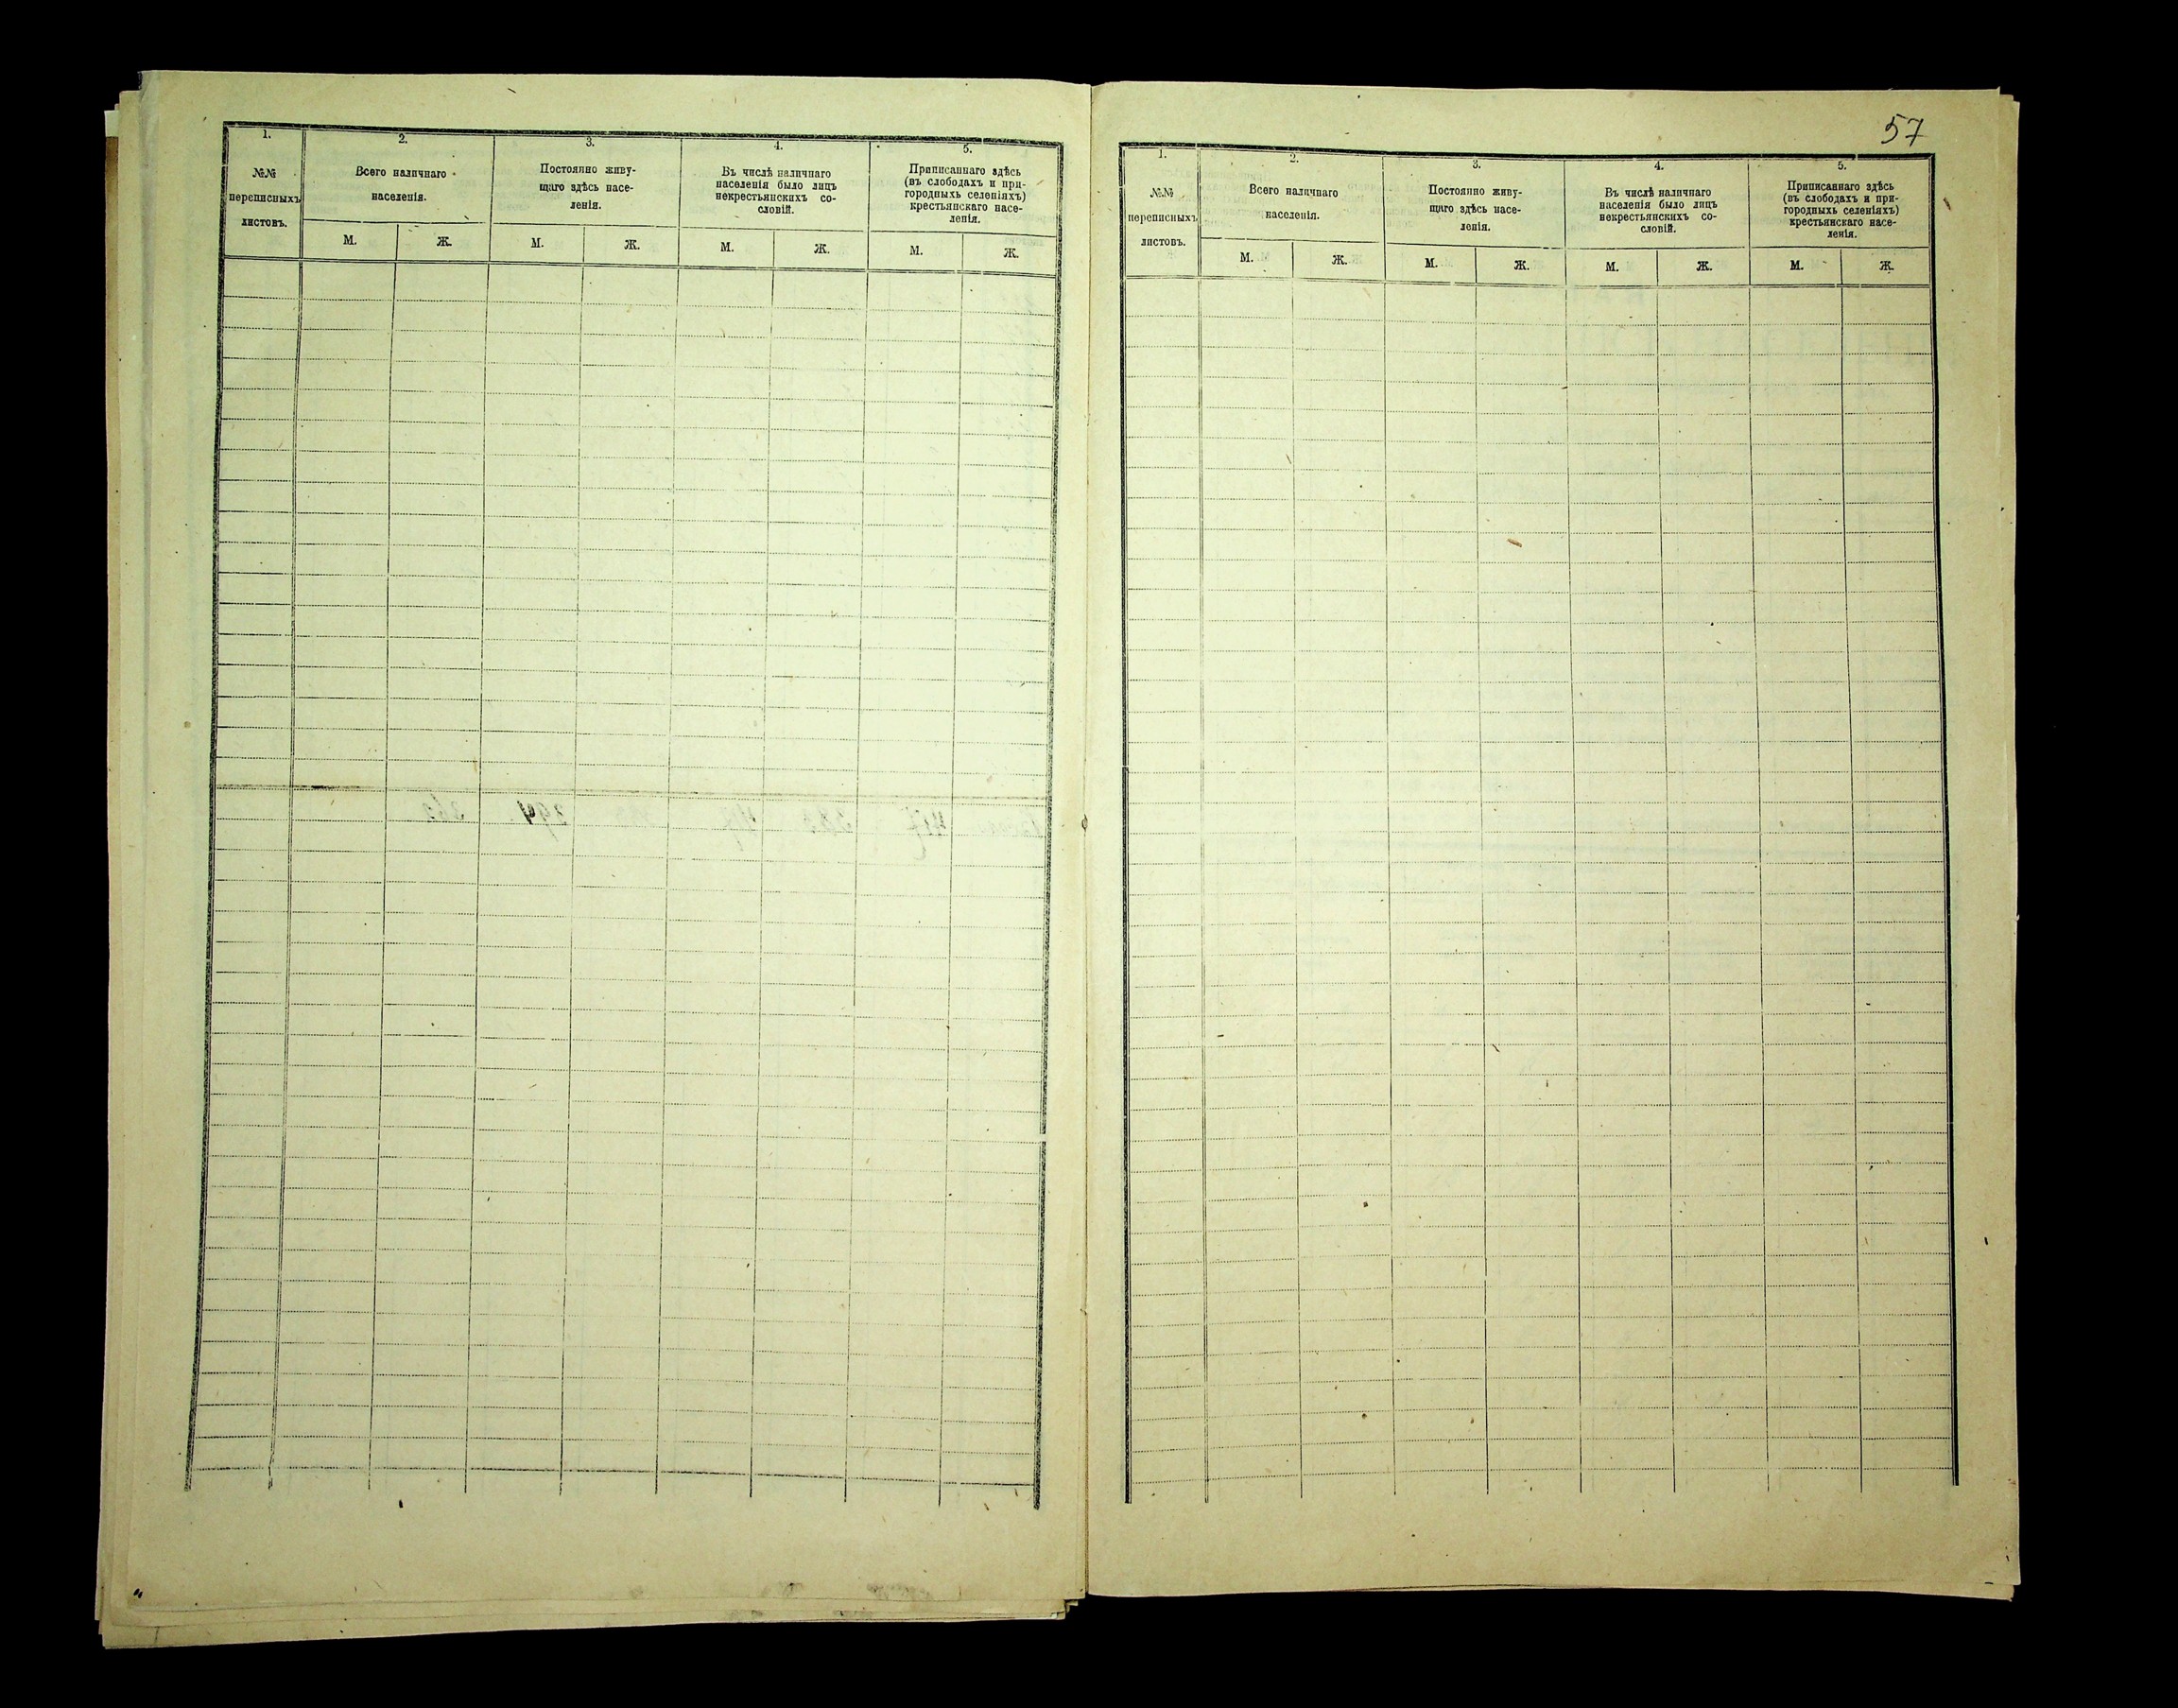 1.
№№
переписныхъ
листовъ.
2.
Всего наличнаго
населенія.
М. Ж.
3.
Постоянно живу-
щаго здѣсь насе-
ленія.
М. Ж.
4.
Въ числѣ наличнаго
населенія было лицъ
некрестьянскихъ со-
словій.
М. Ж.
5.
Приписаннаго здѣсь
(въ слободахъ и при-
городныхъ селеніяхъ)
крестьянскаго насе-
ленія.
М. Ж.
57
1.
№№
переписныхъ
листовъ.
2.
Всего наличнаго
населенія.
М. Ж.
3.
Постоянно живу-
щаго здѣсь насе-
ленія.
М. Ж.
4.
Въ числѣ наличнаго
населенія было лицъ
некрестьянскихъ со-
словій.
М. Ж.
5.
Приписаннаго здѣсь
(въ слободахъ и при-
городныхъ селеніяхъ)
крестьянскаго насе-
ленія.
М. Ж.